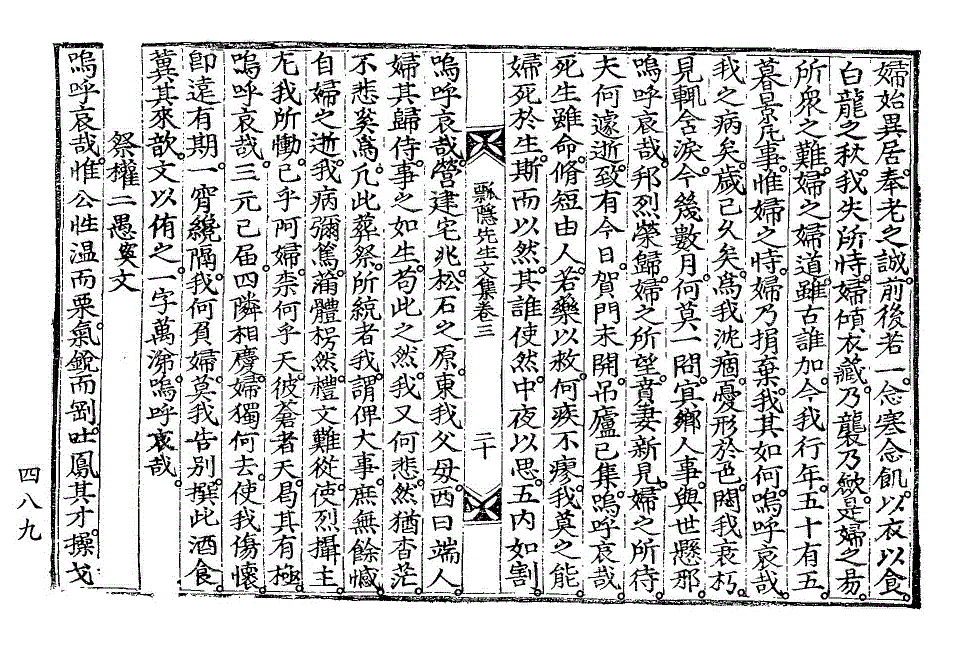 婦始異居。奉老之誠。前後若一。念寒念飢。以衣以食。
白龍之秋。我失所恃。婦傾衣藏。乃襲乃斂。是婦之易。
所衆之難。婦之婦道。雖古誰加。今我行年。五十有五。
暮景凡事。惟婦之恃。婦乃捐棄。我其如何。嗚呼哀哉。
我之病矣。歲已久矣。爲我沈痼。憂形於色。閔我衰朽。
見輒含淚。今幾數月。何莫一問。宜鄉人事。與世懸邪。
嗚呼哀哉。邦烈榮歸。婦之所望。賁妻新見。婦之所待。
夫何遽逝。致有今日。賀門未開。吊廬已集。嗚呼哀哉。
死生雖命。脩短由人。若藥以救。何疾不瘳。我莫之能。
婦死於生。斯而以然。其誰使然。中夜以思。五內如割。
瓢隱先生文集卷三 二十
嗚呼哀哉。營建宅兆。松石之原。東我父母。西曰端人。
婦其歸侍。事之如生。苟此之然。我又何悲。然猶杳茫。
不悲奚爲。凡此葬祭。所統者我。謂俾大事。庶無餘憾。
自婦之逝。我病彌篤。蒲體楞然。禮文難從。使烈攝主。
尤我所慟。已乎阿婦。柰何乎天。彼蒼者天。曷其有極。
嗚呼哀哉。三元已届。四隣相慶。婦獨何去。使我傷懷。
卽遠有期。一宵纔隔。我何負婦。莫我告別。撰此酒食。
冀其來歆。文以侑之。一字萬涕。嗚呼哀哉。
祭權二愚寔文
嗚呼哀哉。惟公性溫而栗。氣銳而剛。吐鳳其才。操戈
四八九